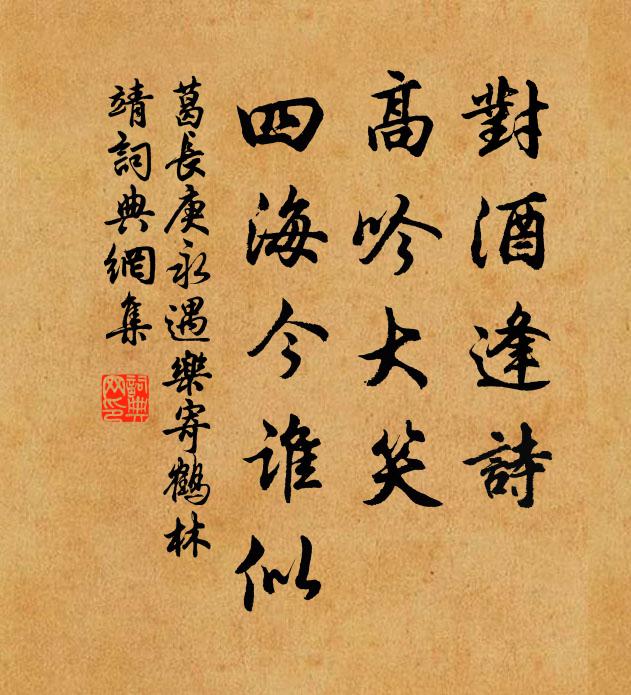 對酒逢詩
高吟大笑
四海今谁似
葛長庚永遇樂寄鶴林
靖詞典網集
詞典
网印